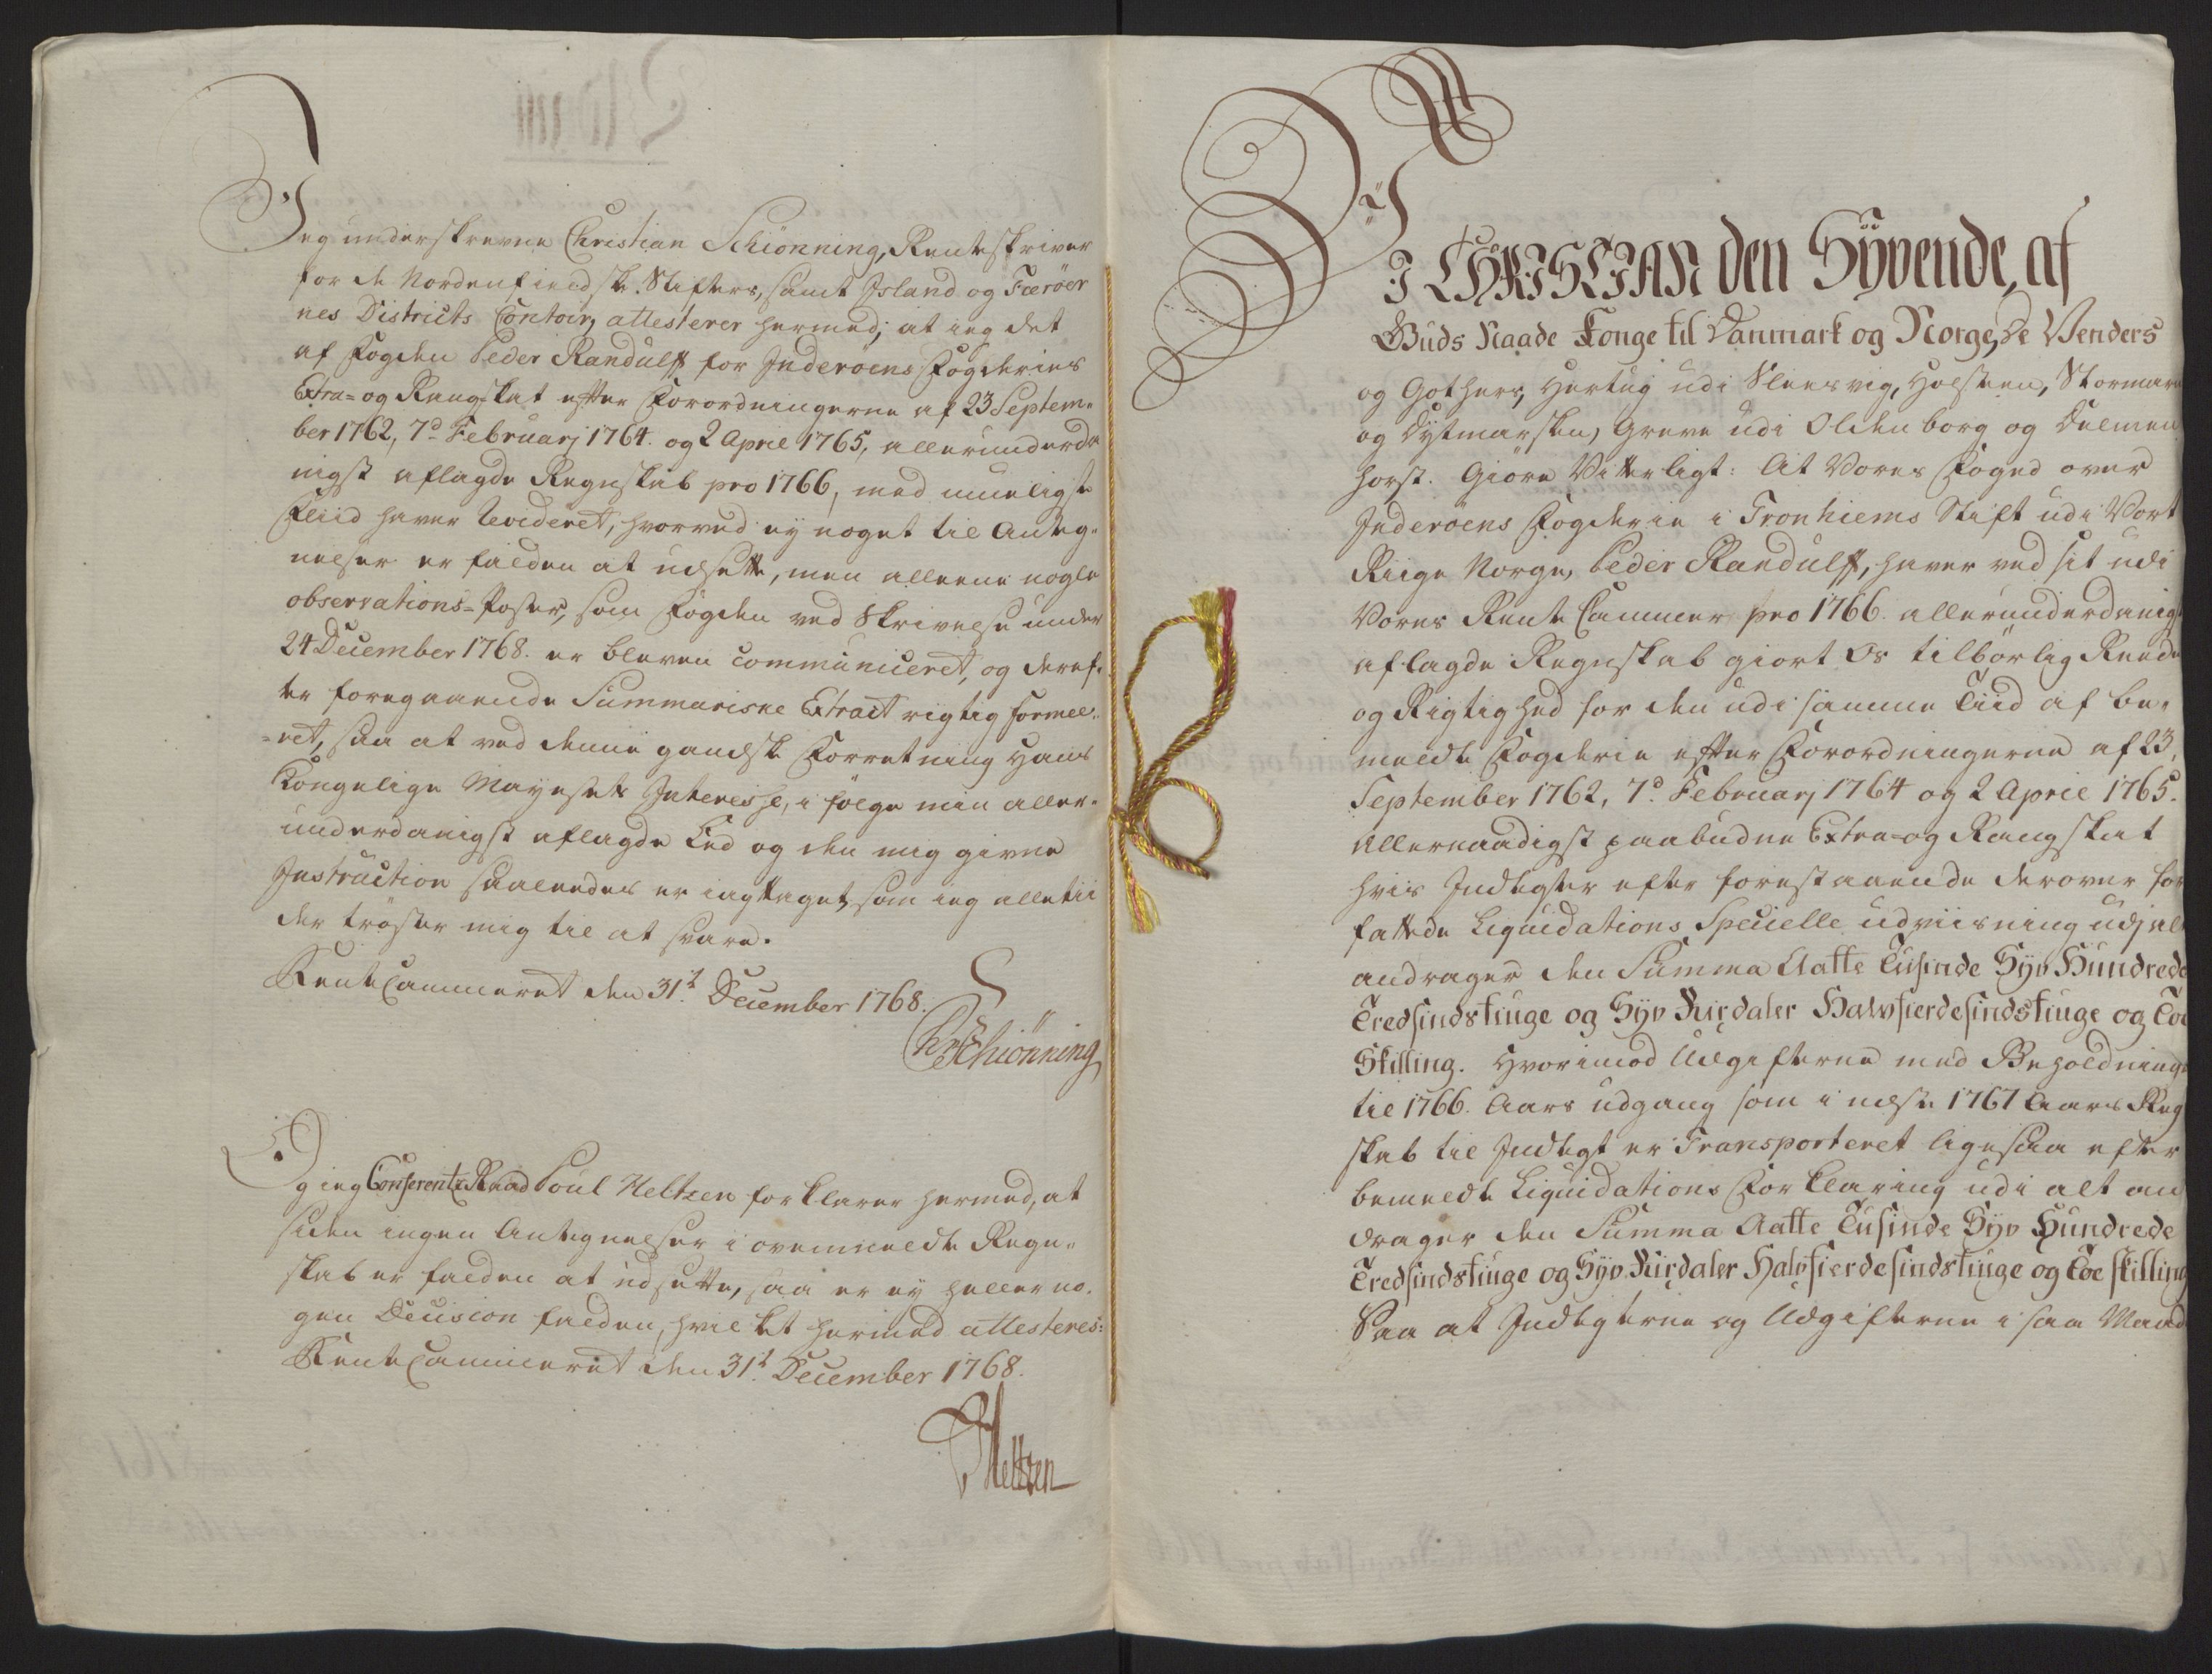 Jeg underskrevne Christian Schiönning, Renteskriver
for de Nordenfieldske Stifters, samt Island og Færöer
nes Districts Contoir, attesterer hermed; at ieg det
af Fogden Peder Randulff for Inderöens Fogderies
Extra- og Rangskat efter Forordningerne af 23 Septem-
ber 1762, 7de Februarj 1764. og 2 April 1765, allerunderda
nigst aflagde Regnskab pro 1766, med mueligste
Fliid haver Revideret, hvorved ey noget til Anteg-
nelser er falden at udsette, men alleene nogle
observations-Poster, som Fogden ved Skrivelse under
24 December 1768. er bleven communiceret, og deref-
ter foregaaende Summariske Extract rigtig formee-
-ret, saa at ved denne gandske Forretning Hans
Kongelige Mayestets Interesse, i fölge min aller-
underdanigst aflagde Eed og den mig givne
Instruction saaleedes er iagttaget, som ieg alletii
der tröster mig til at svare.
RenteCammeret den 31t December 1768.
Chr Schiönning
Og ieg Conferentz Raad Poul Heltzen forklarer hermed, at
siden ingen Antegnelser i ovenmeldte Regn-
skab er falden at udsette, saa er ey heller no-
gen Decision falden, hvilket hermed attesteres:
RenteCammeret den 31t December 1768.
PHeltzen
VI CHRISTIAN den Syvende, af
Guds Naade Konge til Danmark og Norge, De Venders
og Gothers, Hertug udi Sleesvig, Holsteen, Stormarn
og Dytmarsken, Greve udi Oldenborg og Delmen
horst. Giöre Vitterligt: At Vores Foged over
Inderöens Fogderie i Tronhiems Stift udi Vort
Riige Norge, Peder Randulff, haver ved sit udi
Vores Rente Cammer pro 1766. allerunderdanigst
aflagde Regnskab giort Os tilbörlig Reede
og Rigtighed for den udi samme Tiid af be-
meldte Fogderie efter Forordningerne af 23
September 1762, 7de Februarj 1764 og 2 April 1765.
Allernaadigst paabudne Extra- og Rangskat
hvis Indtegter efter forestaaende derover for
fattede Liquidations Specielle udviisning udj alt
andrager den Summa Aatte Tusinde Syv Hundrede
Tredsindstiuge og Syv Rixdaler Halvfierdesindstiuge og Toe
Skilling. Hvorimod Udgifterne med Beholdning
til 1766. Aars udgang som i nestE 1767 Aars Reg
skab til Indtegt er Transporteret ligesaa efter
bemeldte Liquidations Forklaring udi alt an
drager den Summa Aatte Tusinde Syv Hundrede
Tredsindstiuge og Syv Rixdaler Halvfierdesindstiuge og Toe skilling
Saa at Indtegterne og Udgifterne i saa Maade